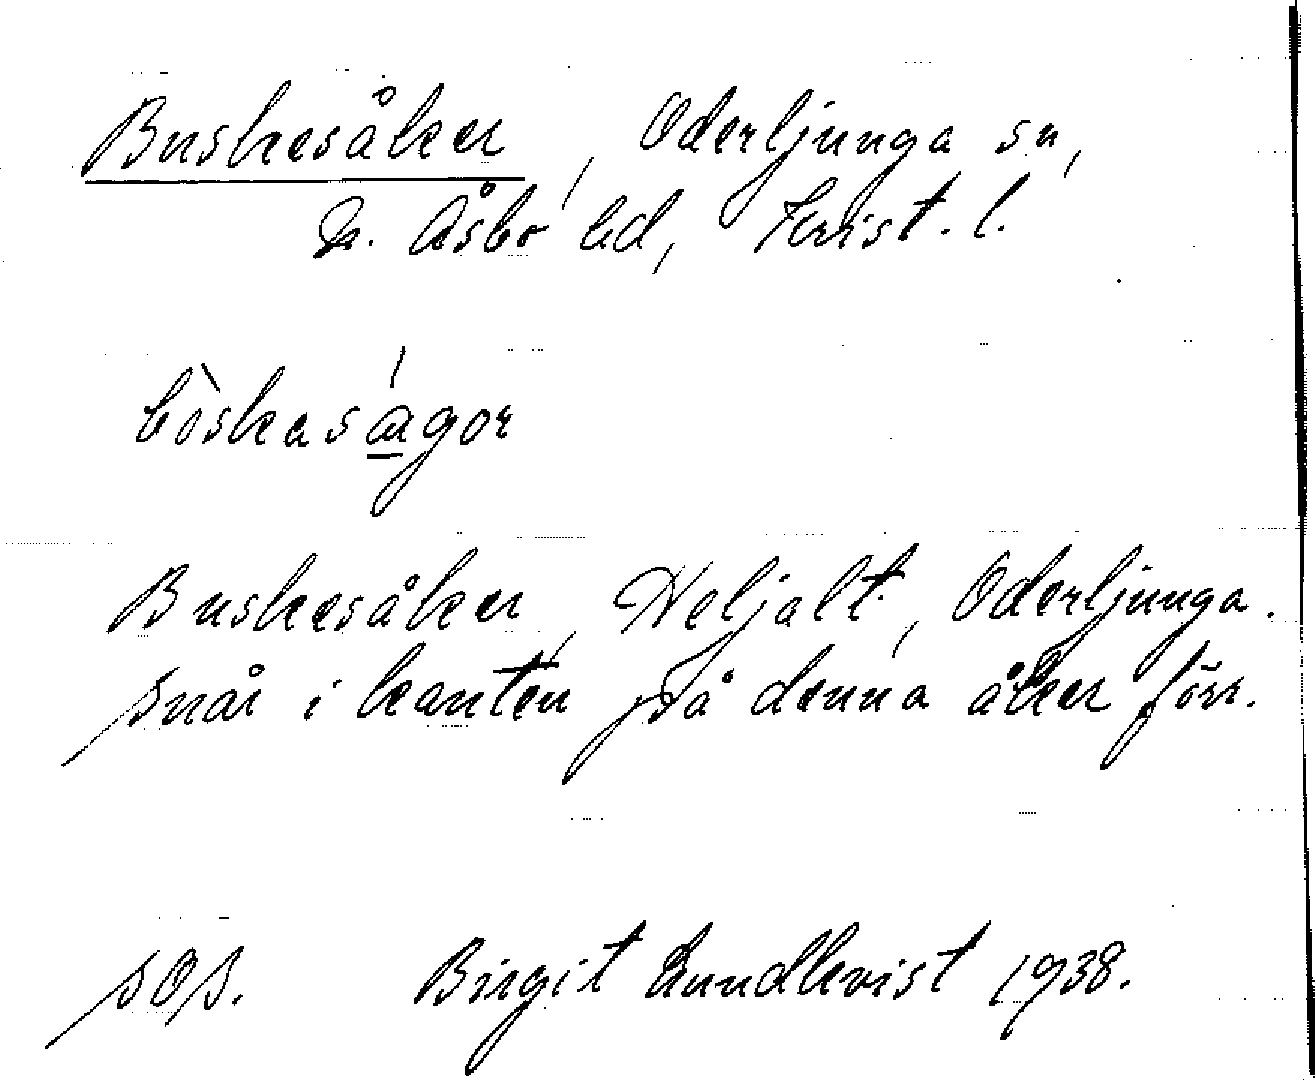 Buskesåker, Oderljunga sn,
N. Åsbo hd, Krist. l.
bòskaságor
Buskesåker, Heljalt, Oderljunga.
snår i kanten på denna åker förr.
sOs. Birgit Lundkvist 1938.